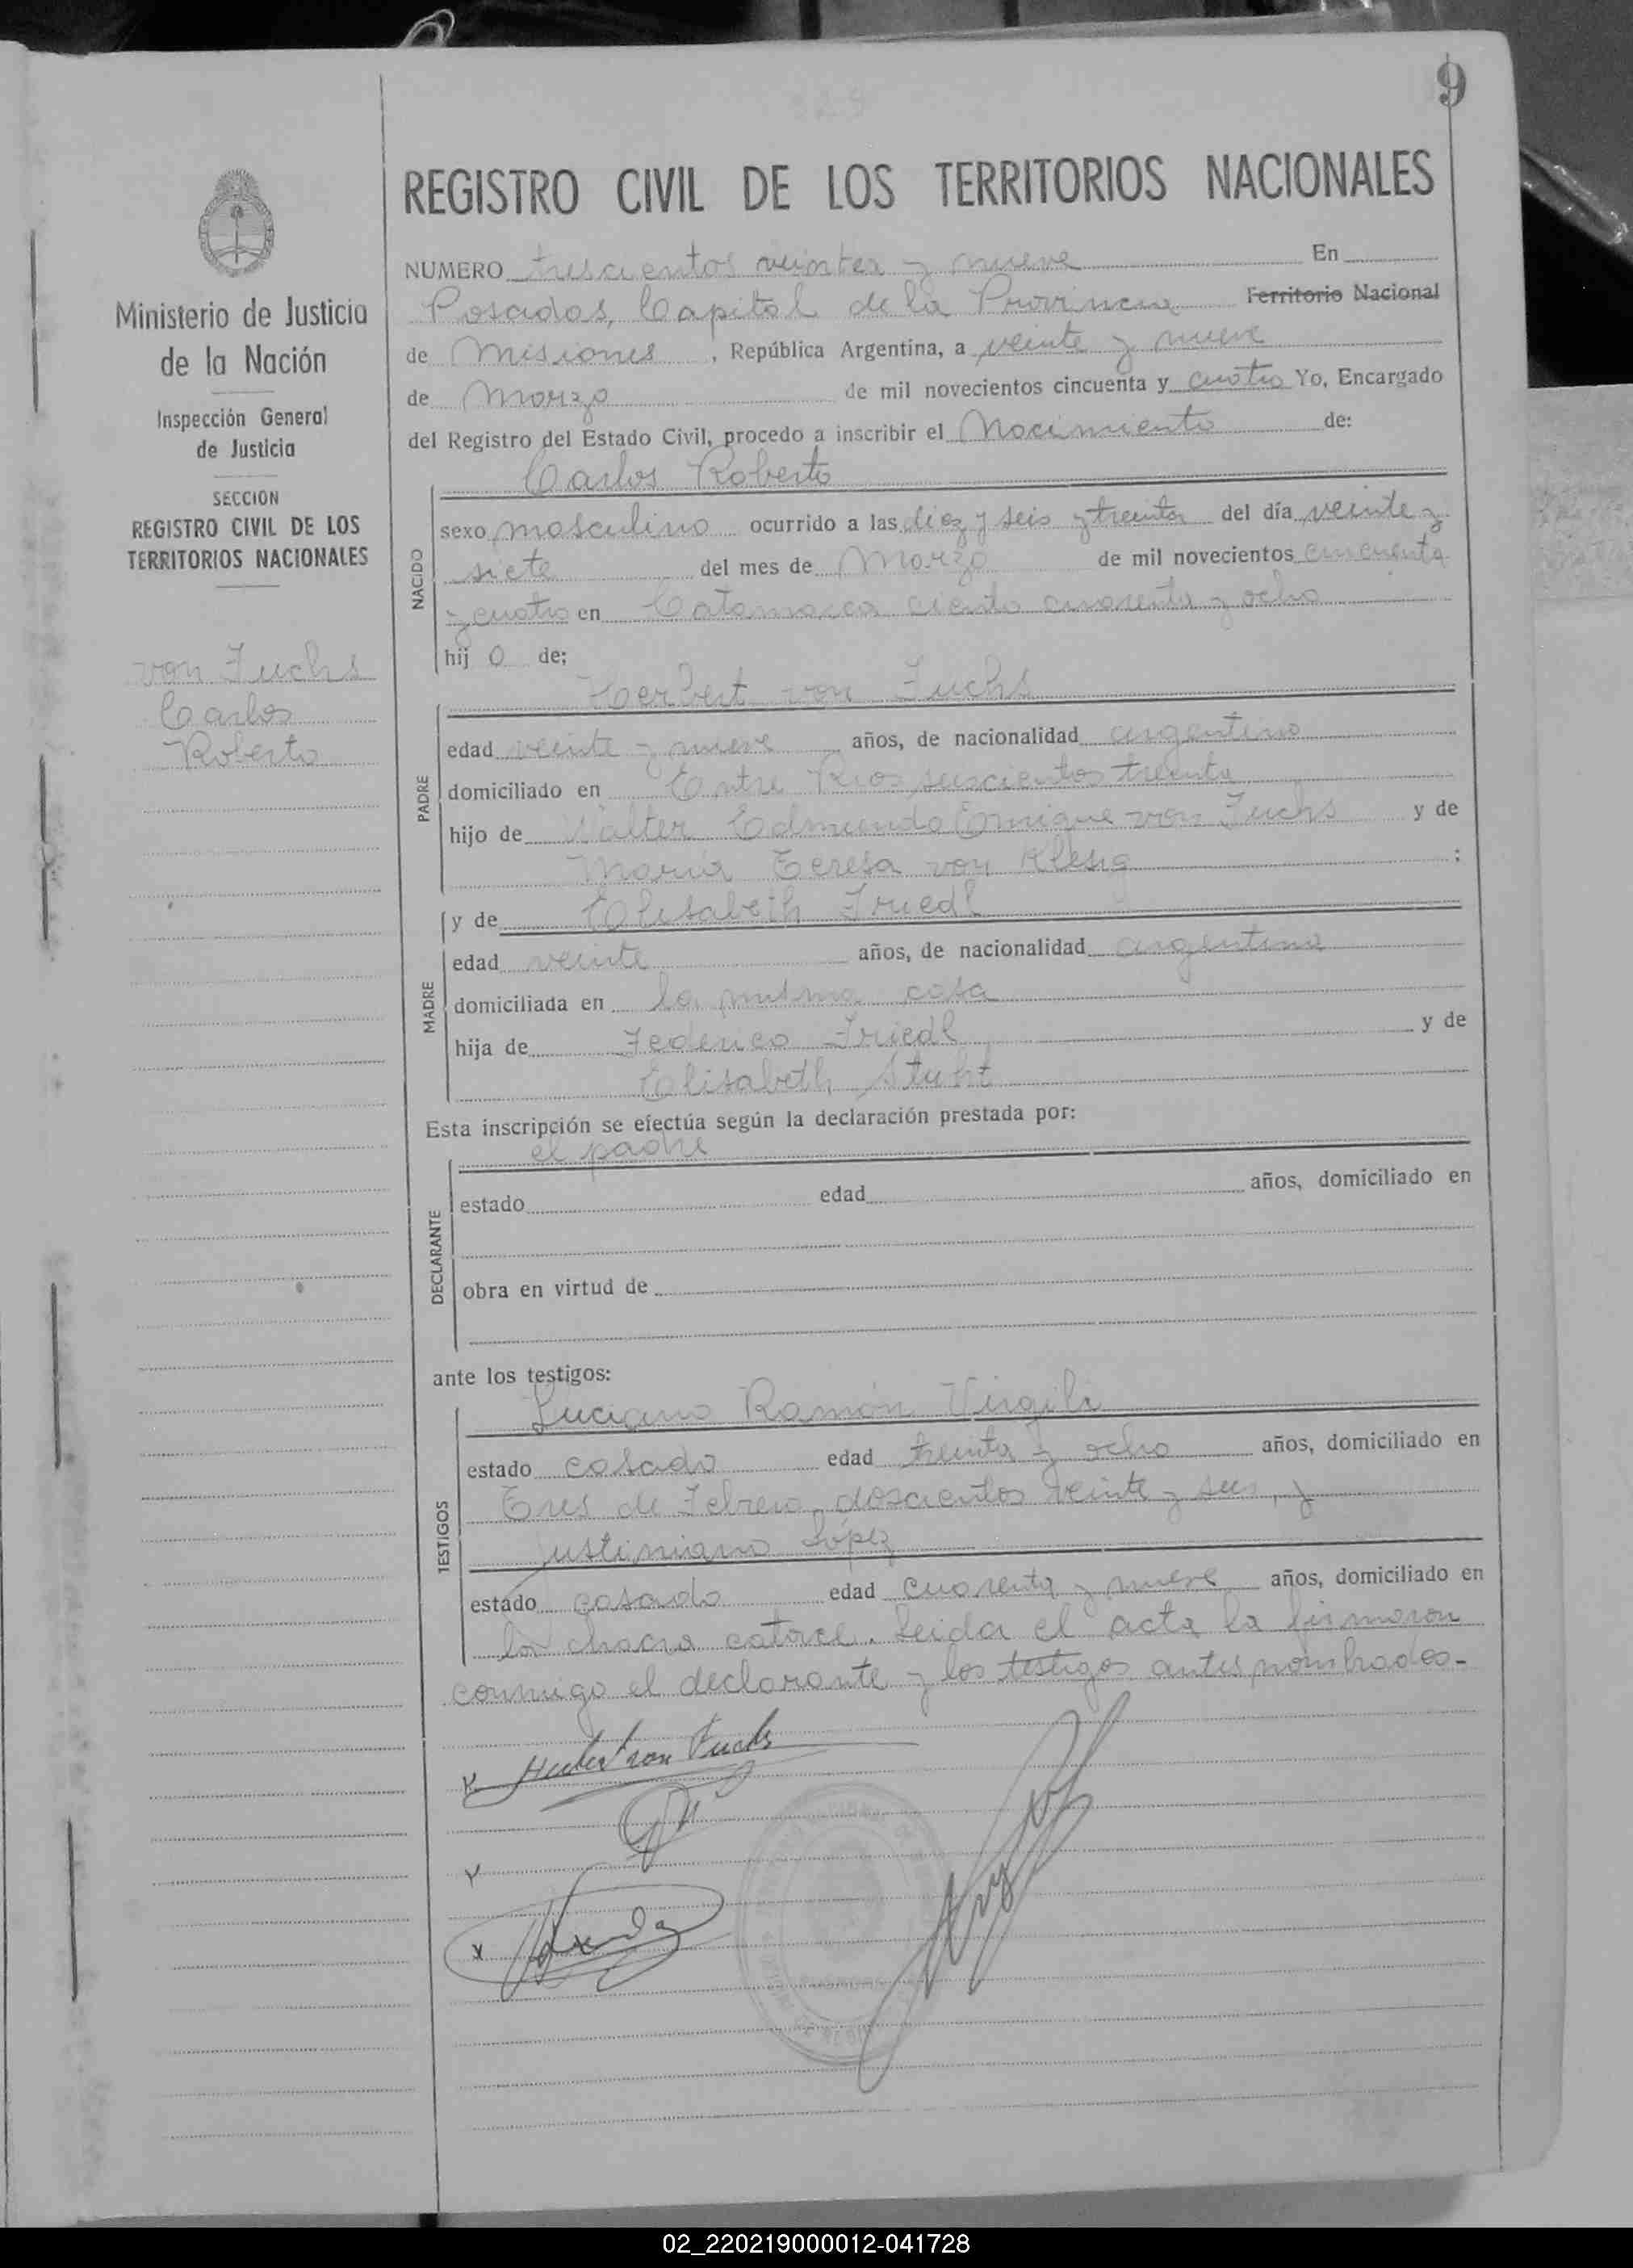 9
REGISTRO CIVIL DE LOS TERRITORIOS NACIONALES
Ministerio de Justicia
de la Nación
Inspección General
de Justicia
SECCION
REGISTRO CIVIL DE LOS
TERRITORIOS NACIONALES
von Fuchs
Carlos
Roberto
NUMERO trescientos veinte y nueve En
Posadas, Capital de la Provincia Territorio Nacional
de Misiones, República Argentina, a veinte y nueve
de Marzo de mil novecientos cincuenta y cuatro Yo, Encargado
del Registro del Estado Civil, procedo a inscribir el Nacimiento de:
Carlos Roberto
NACIDO
sexo masculino ocurrido a las diez y seis y treinta del día veinte y
siete del mes de Marzo de mil novecientos cincuenta
y cuatro en Catamarca ciento cuarenta y ocho
hij o de;
Herbert von Fuchs
PADRE
edad veinte y nueve años, de nacionalidad argentino
domiciliado en Entre Rios seiscientos treinta
hijo de Walter Edmundo Enrique von Fuchs y de
María Teresa von ;
y de Elisabeth Friedl
MADRE
edad veinte años, de nacionalidad argentina
domiciliada en la misma casa
hija de Federico Friedl y de
Elisabeth Stuht
Esta inscripción se efectúa según la declaración prestada por:
el padre
DECLARANTE
estado edad años, domiciliado en
obra en virtud de
ante los testigos:
Luciano Ramón Virgili
TESTIGOS
estado casado edad treinta y ocho años, domiciliado en
Tres de Febrero doscientos veinte y seis, y
Justiniano López
estado casado edad cuarenta y nueve años, domiciliado en
la chacra catorce. Leida el acta la firmaron
conmigo el declarante y los testigos antes nombrados-
Herbert von Fuchs
02_220219000012-041728